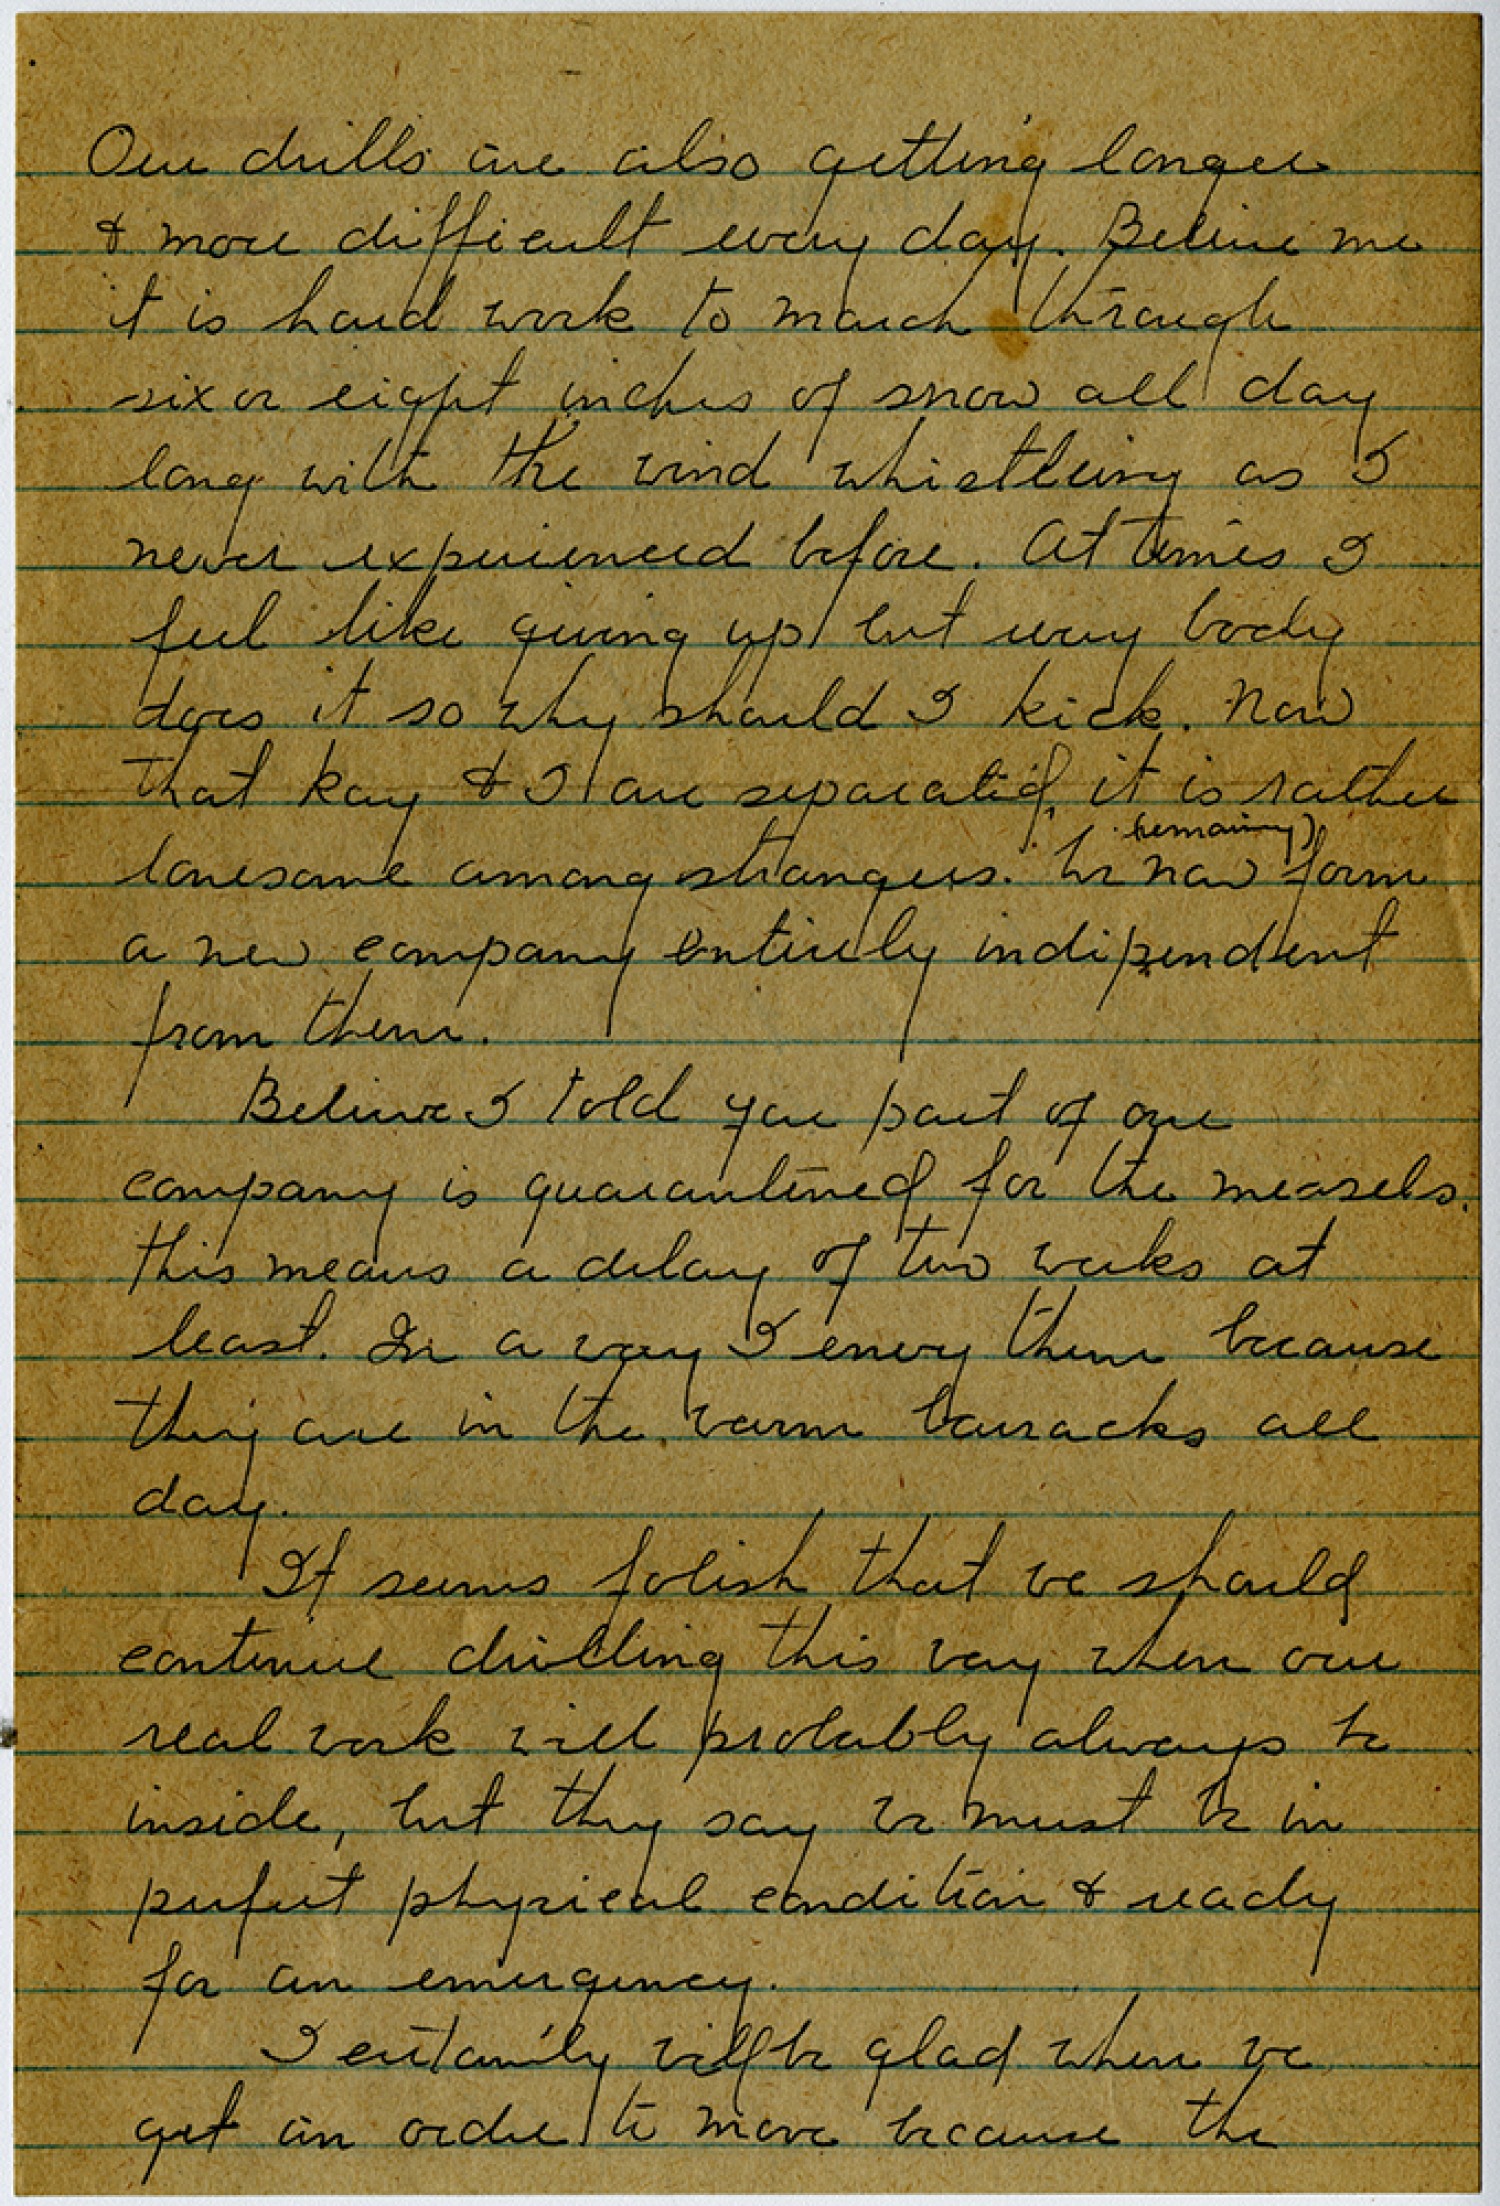 Our drills are also getting longer
& more difficult every day. Believe me
it is hard work to march through
six or eight inches of snow all day
long with the wind whistleing as I
never experienced before. At times I
feel like giving up but every body
does it so why should I kick. Now
that Kay & I are separated, it is rather
lonesome among strangers. We (remaining) now form
a new company entirely indipendent
from them.
Believe I told you part of our
company is quarantined for the measels.
this means a delay of two weeks at
least. In a way I envey them because
they are in the warm barracks all
day.
It seems folish that we should
continue drilling this way when our
real work will probably always be
inside, but they say we must be in
perfect physical condition & ready
for an emergency.
I certainly will be glad when we
get an order to move because the